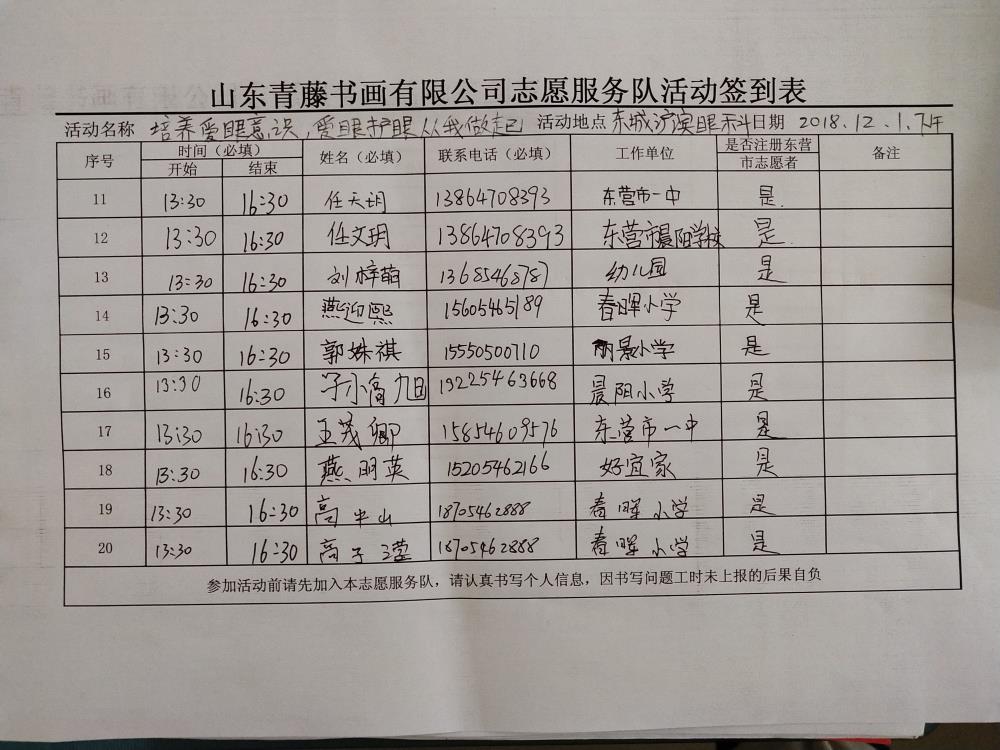 山东青藤书画有限公司志愿服务队活动签到表
活动名称 培养爱眼意识,爱眼护眼从我做起 活动地点 东城沪滨眼科 日期 2018.12.1.下午
序号 时间(必填) 姓名(必填) 联系电话(必填) 工作单位 是否注册东营市志愿者 备注
开始 结束
11 13:30 16:30 任天玥 13864708393 东营市一中 是.
12 13:30 16:30 任文玥 13864708393 东营市晨阳学校 是.
13 13:30 16:30 刘梓萌 13685468787 幼儿园 是
14 13:30 16:30 燕迎熙 15605465189 春晖小学 是
15 13:30 16:30 郭姝祺 15550500710 丽景小学 是
16 13:30 16:30 13225463668 晨阳小学 是
17 13:30 16:30 王茂卿 15854609576 东营市一中 是
18 13:30 16:30 燕明英 15205462166 好宜家 是
19 13:30 16:30 高半山 18705462888 春晖小学 是
20 13:30 16:30 高子滢 18705462888 春晖小学 是
参加活动前请先加入本志愿服务队,请认真书写个人信息,因书写问题工时未上报的后果自负